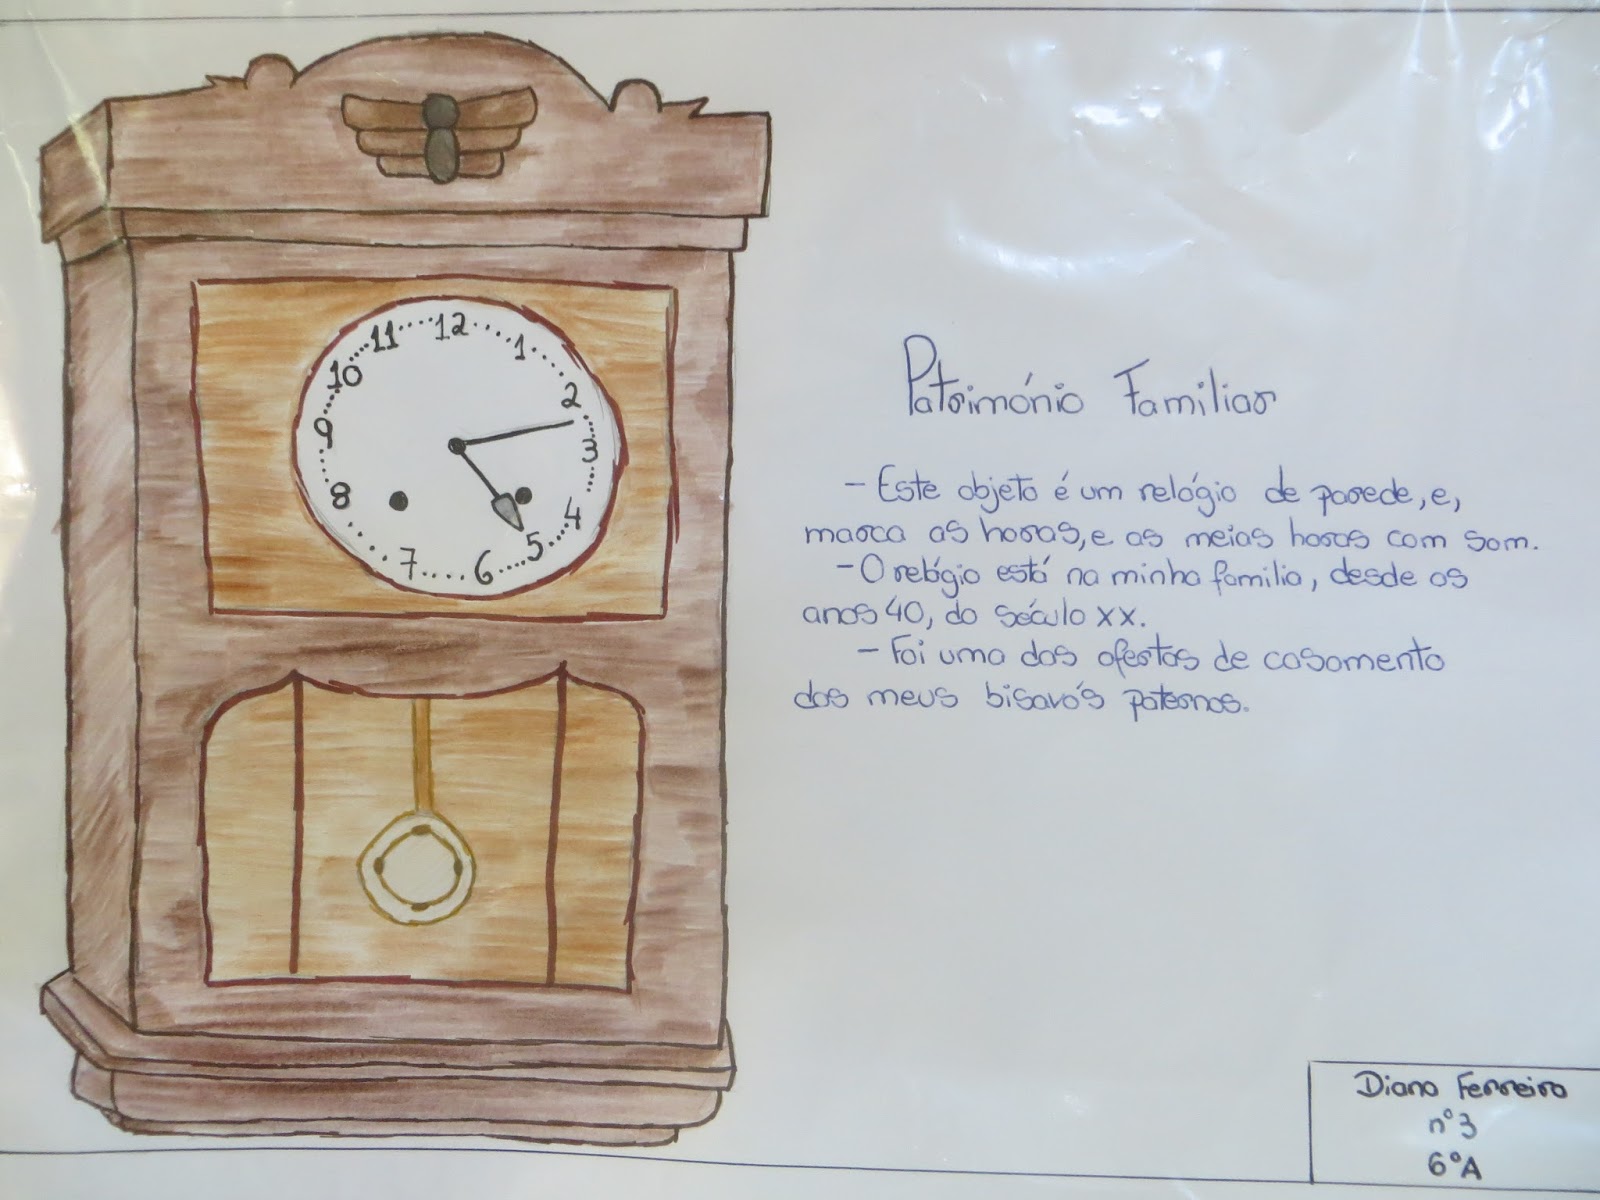 12
11
1
10
2
9
3
8
4
7
6
5
Património Familiar
- Este objeto é um relógio de parede, e,
marca as horas, e as meias horas com som.
- O relógio está na minha familia, desde os
anos 40, do século XX.
- Foi uma das ofertas de casamento
dos meus bisavós paternos.
Diana Ferreira
nº3
6ºA